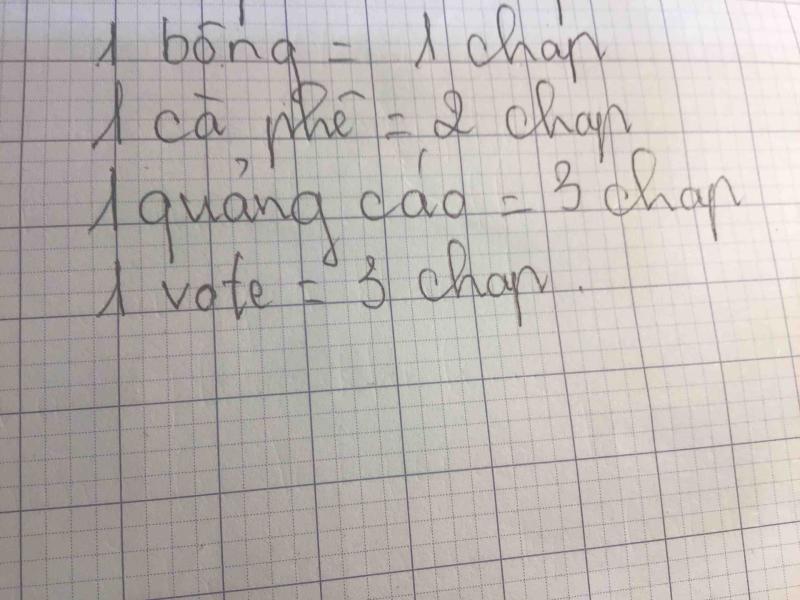 1 bông = 1 chap
1 cà phê = 2 chap
1 quảng cáo = 3 chap
1 vote = 3 chap.